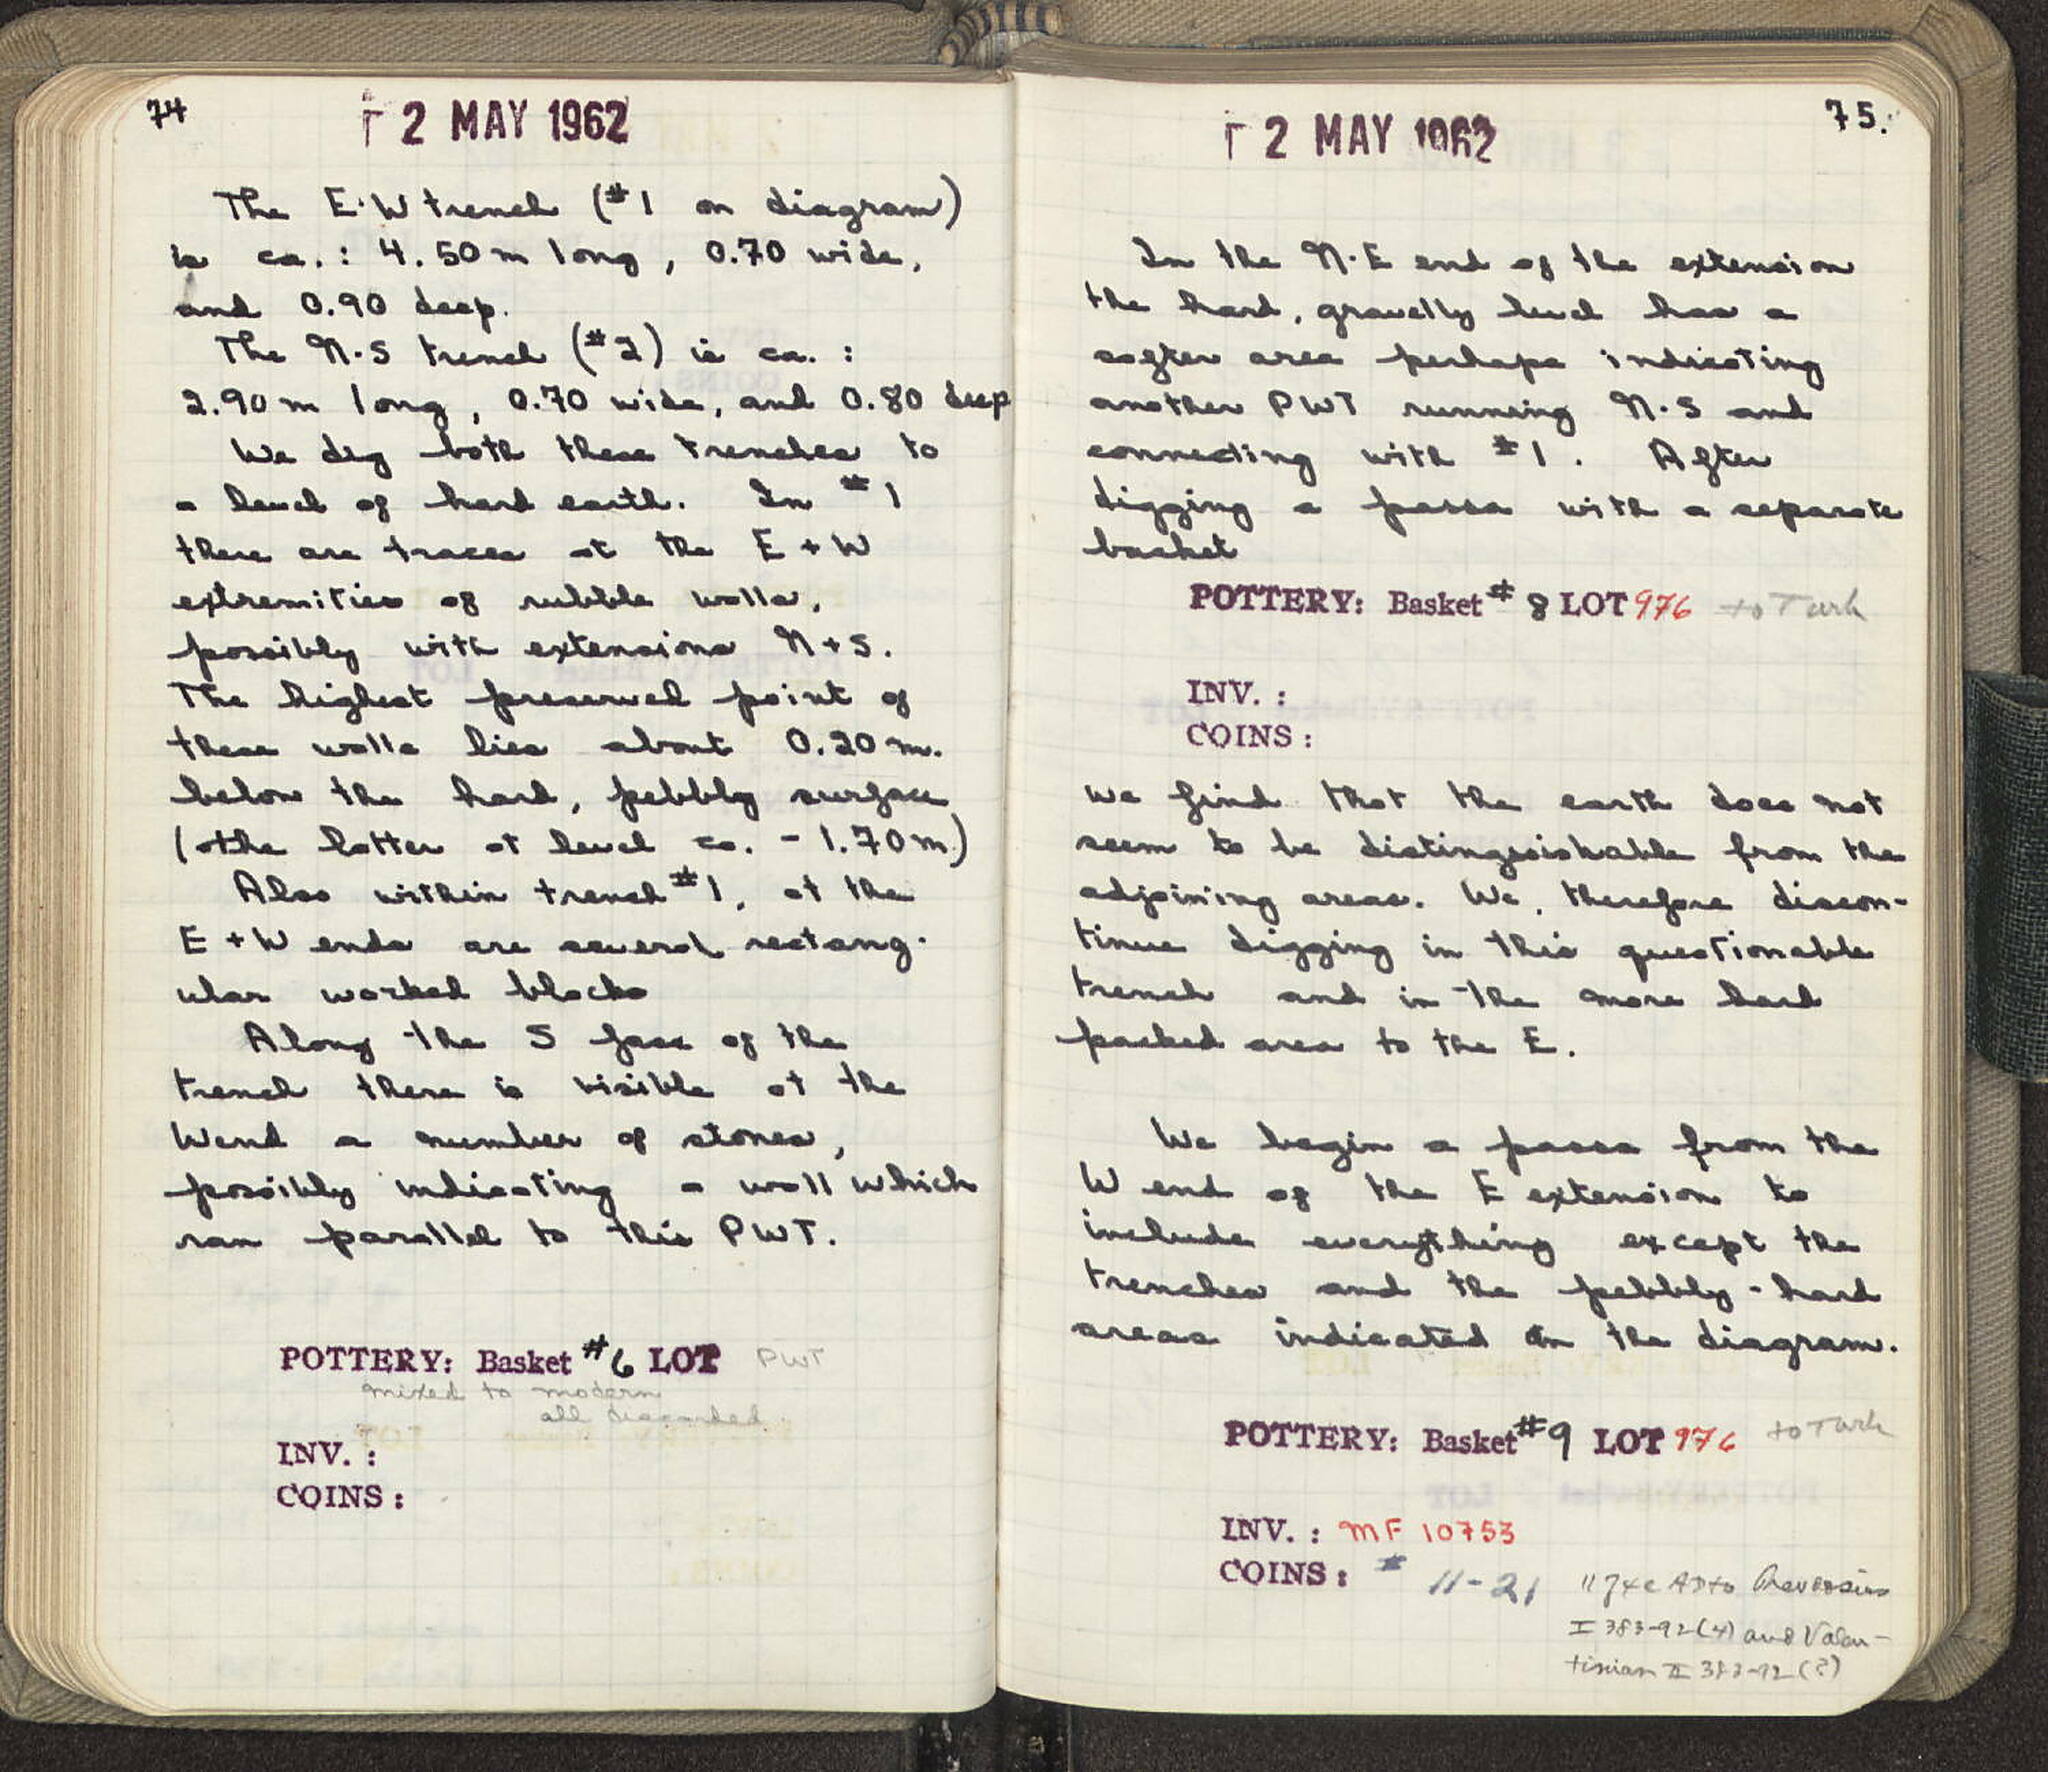 74
2 MAY 1962
The E-W trench (#1 on diagram)
is ca.: 4.50 m long, 0.70 wide,
and 0.90 deep.
The N-S trench (#2) is ca.:
2.90 m long, 0.70 wide, and 0.80 deep
We dig both these trenches to
a level of hard earth. In #1
there are traces at the E + W
extremities of rubble walls,
possibly with extensions N + S.
The highest preserved point of
these walls lies about 0.20 m.
below the hard, pebbly surface
(the latter at level ca. - 1.70 m.)
Also within trench #1, at the
E + W ends are several rectang-
ular worked blocks
Along the S face of the
trench there is visible at the
W end a number of stones,
possibly indicating a wall which
ran parallel to this PWT.
POTTERY: Basket #6 LOT PWT
mixed to modern
all discarded.
INV.:
COINS:
75.
2 MAY 1962
In the N-E end of the extension
the hard, gravelly level has a
softer area perhaps indicating
another PWT running N-S and
connecting with #1. After
digging a passa with a separate
basket
POTTERY: Basket #8 LOT 976 to Turk
INV.:
COINS:
we find that the earth does not
seem to be distinguishable from the
adjoining areas. We, therefore discon-
tinue digging in this questionable
trench and in the more hard
packed area to the E.
We begin a passa from the
W end of the E extension to
include everything except the
trenches and the pebbly-hard
areas indicated on the diagram.
POTTERY: Basket #9 LOT 976 to Turk
INV.: MF 10753
COINS: # 11-21
AD to
I 383-92 (4) and Valen-
tinian II 383-92 (?)